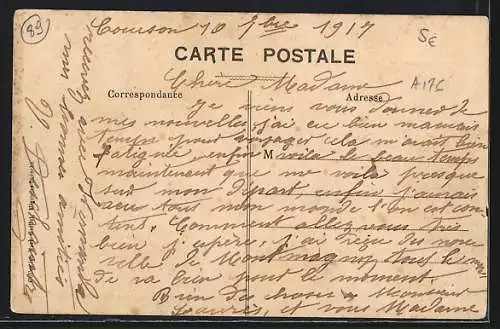 89
Courson 10 7bre 1917
5€
CARTE POSTALE
A176
Chère Madame
Correspondance
Adresse
Je viens vous donner de
mes nouvelles j'ai eu bien mauvais
temps pour voyager cela m'avait bien
fatiguée enfin voila le beau temps
M
maintenant que me voila presque
sur mon départ, enfin j'aurais
vu tout mon monde l'on est con-
tent. Comment allez vous très
bien j'espère, j'ai reçu des nou-
velle de Montmagny tout le monde
de va bien pour le moment.
Bien de choses a Monsieur
et vous Madame
recevez avec Fernande
nos bonnes amitiés